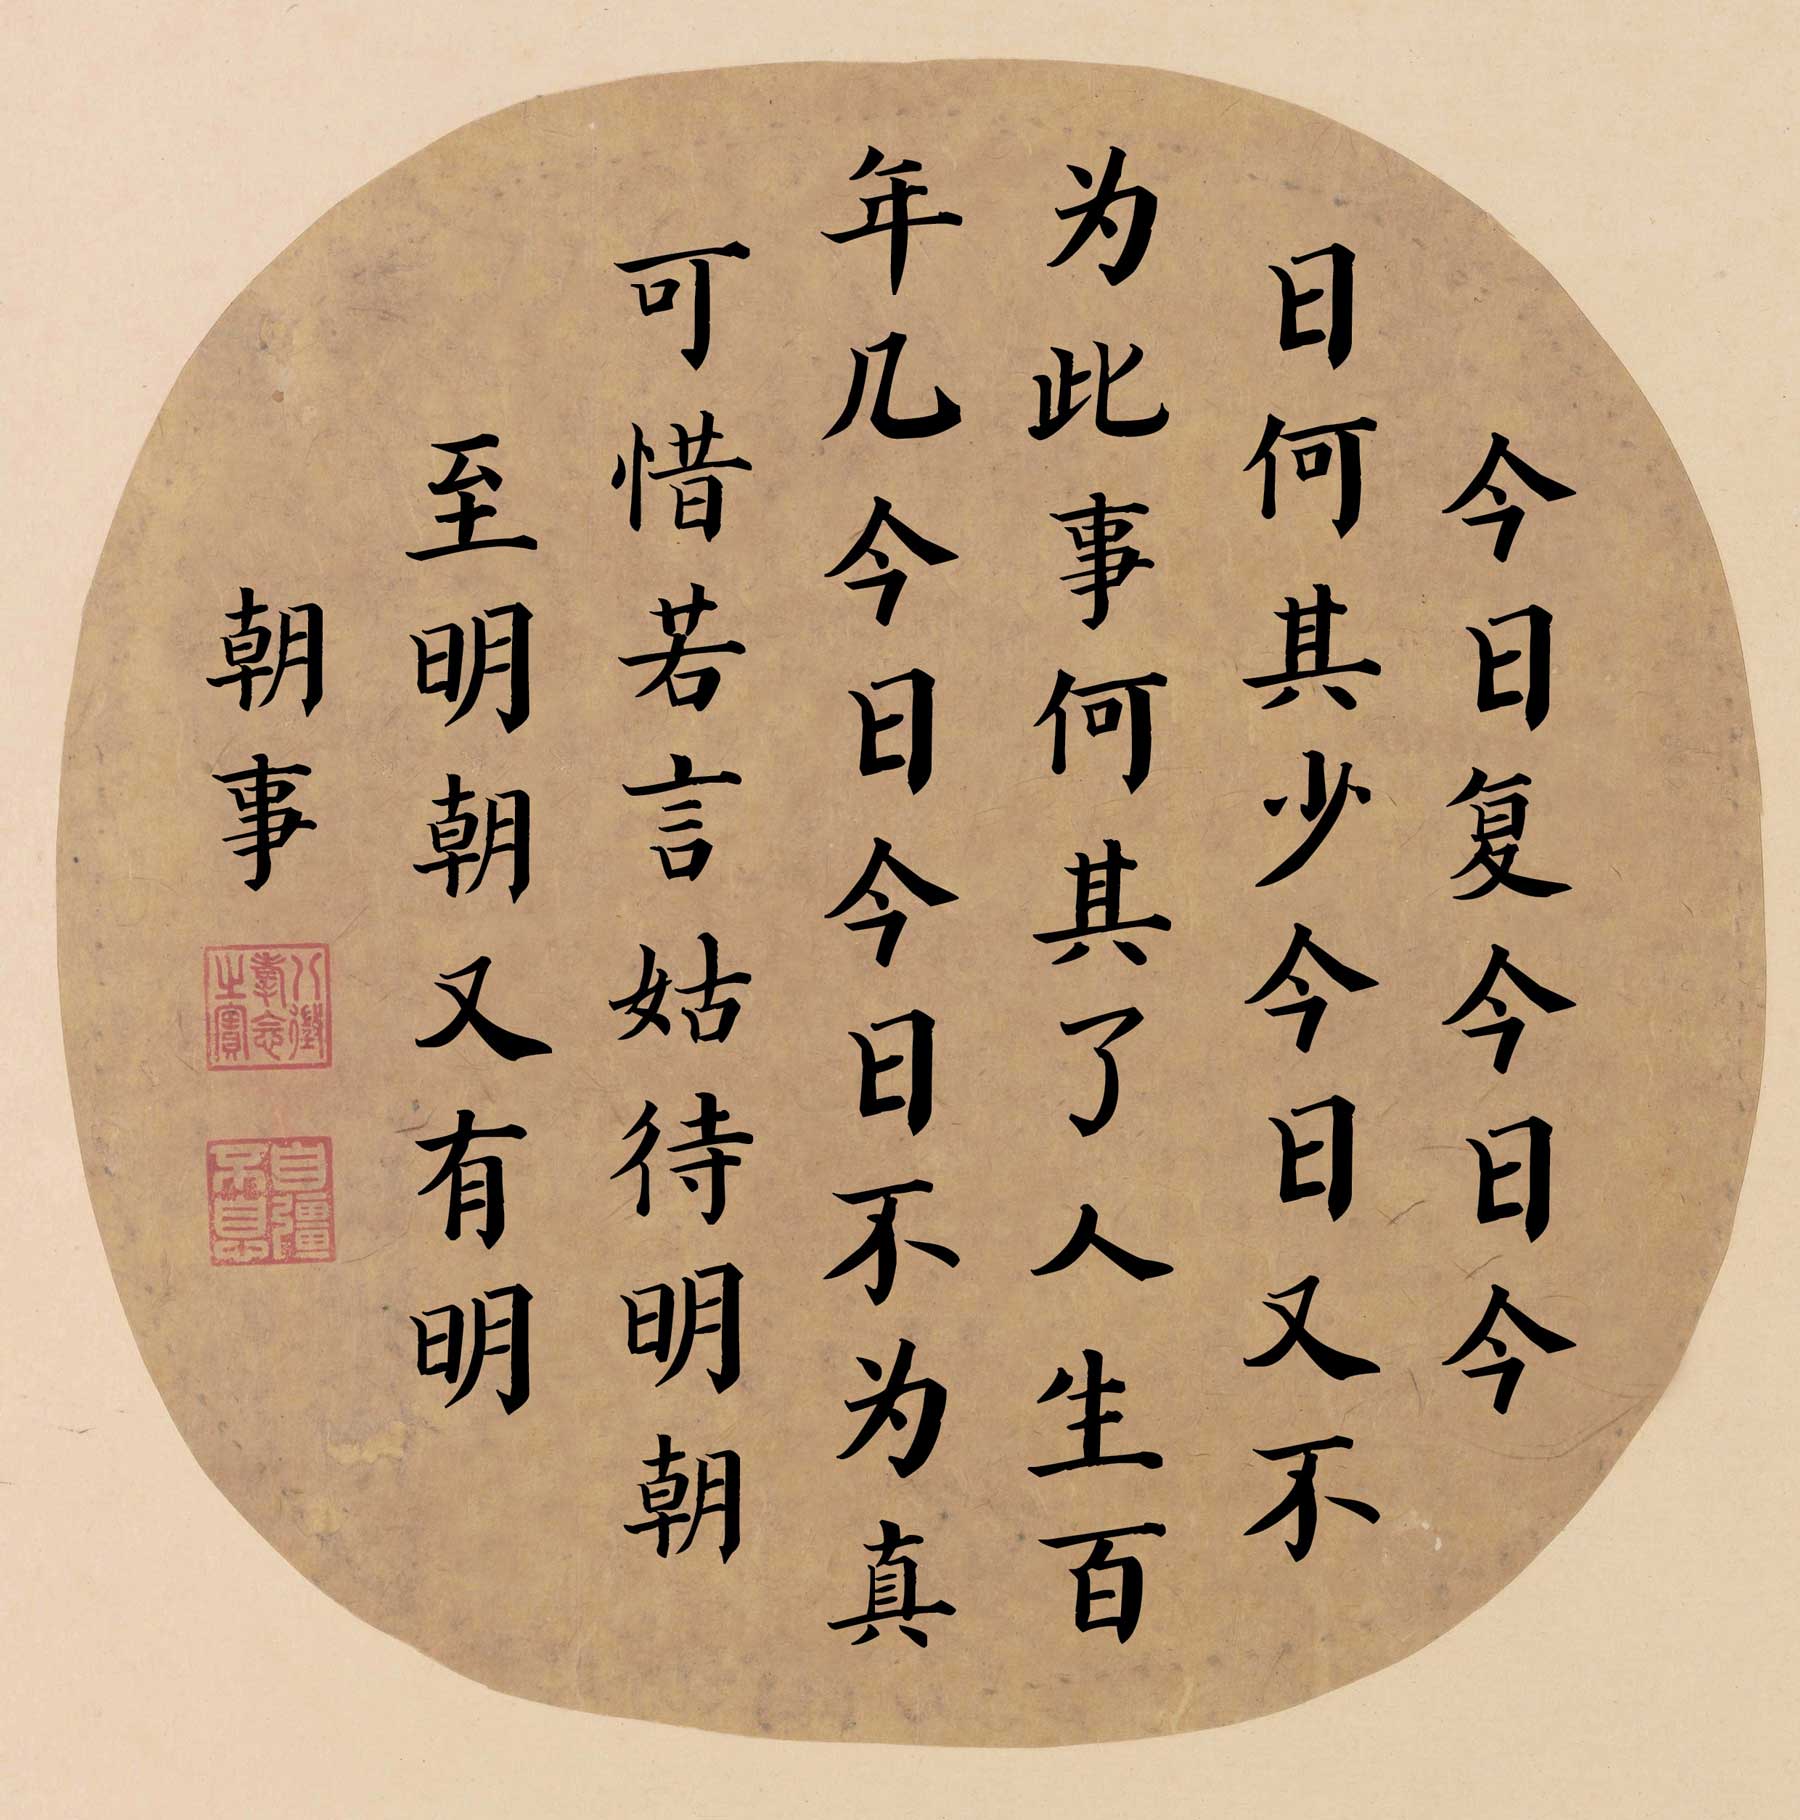 今日复今日今
日何其少今日又不
为此事何其了人生百
年几今日今日不为真
可惜若言姑待明朝
至明朝又有明
朝事
八徵耄念之寶
自彊不息